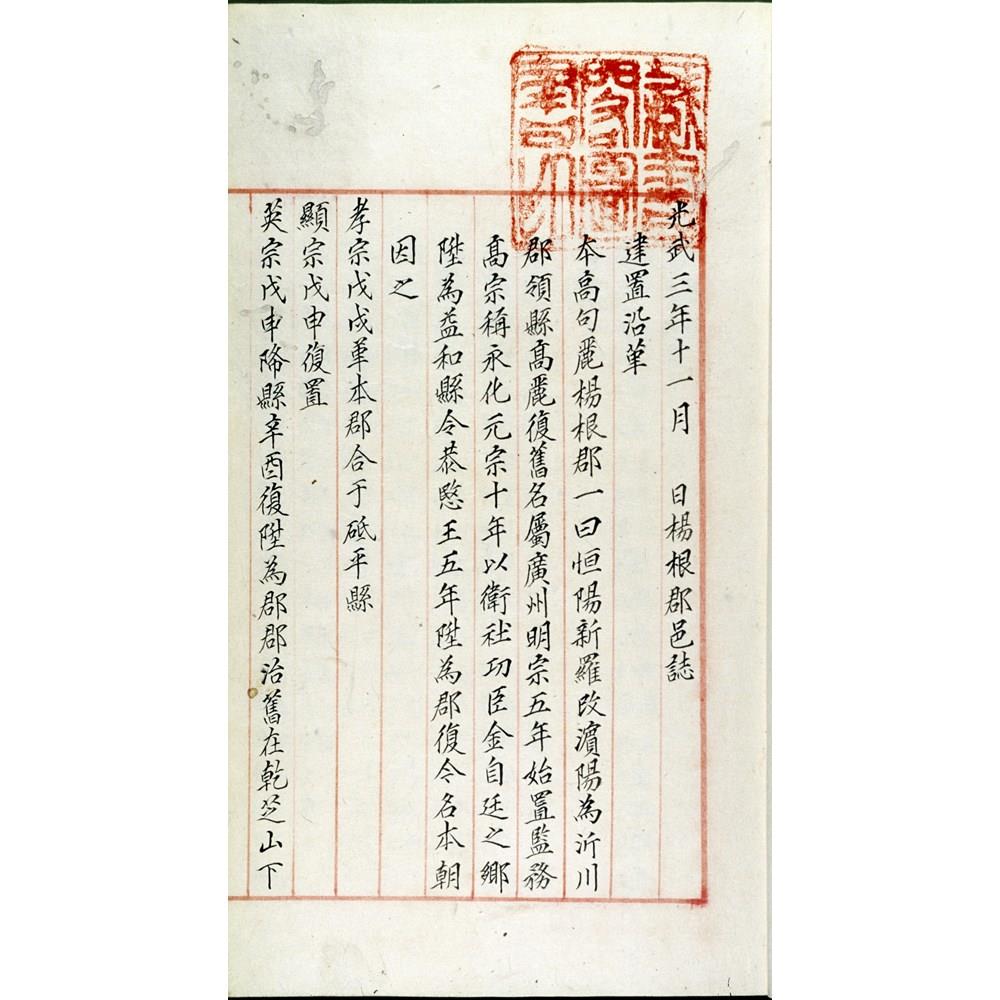 光武三年十一月　日楊根郡邑誌
建置沿革
本高句麗楊根郡一曰恒陽新羅改濱陽為沂川
郡領縣高麗復舊名屬廣州明宗五年始置監務
高宗稱永化元宗十年以衛社功臣金自廷之鄉
陞為益和縣令恭愍王五年陞為郡復令名本朝
因之
孝宗戊戌革本郡合于砥平縣
顯宗戊申復置
英宗戊申降縣辛酉復陞為郡郡治舊在乾芝山下